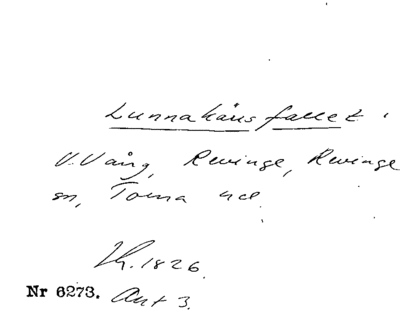 Lunnahäusfallet.
V. Vång, Revinge, Revinge
sn, Torna hd.
Lh. 1826.
Nr 6273. Ant 3.